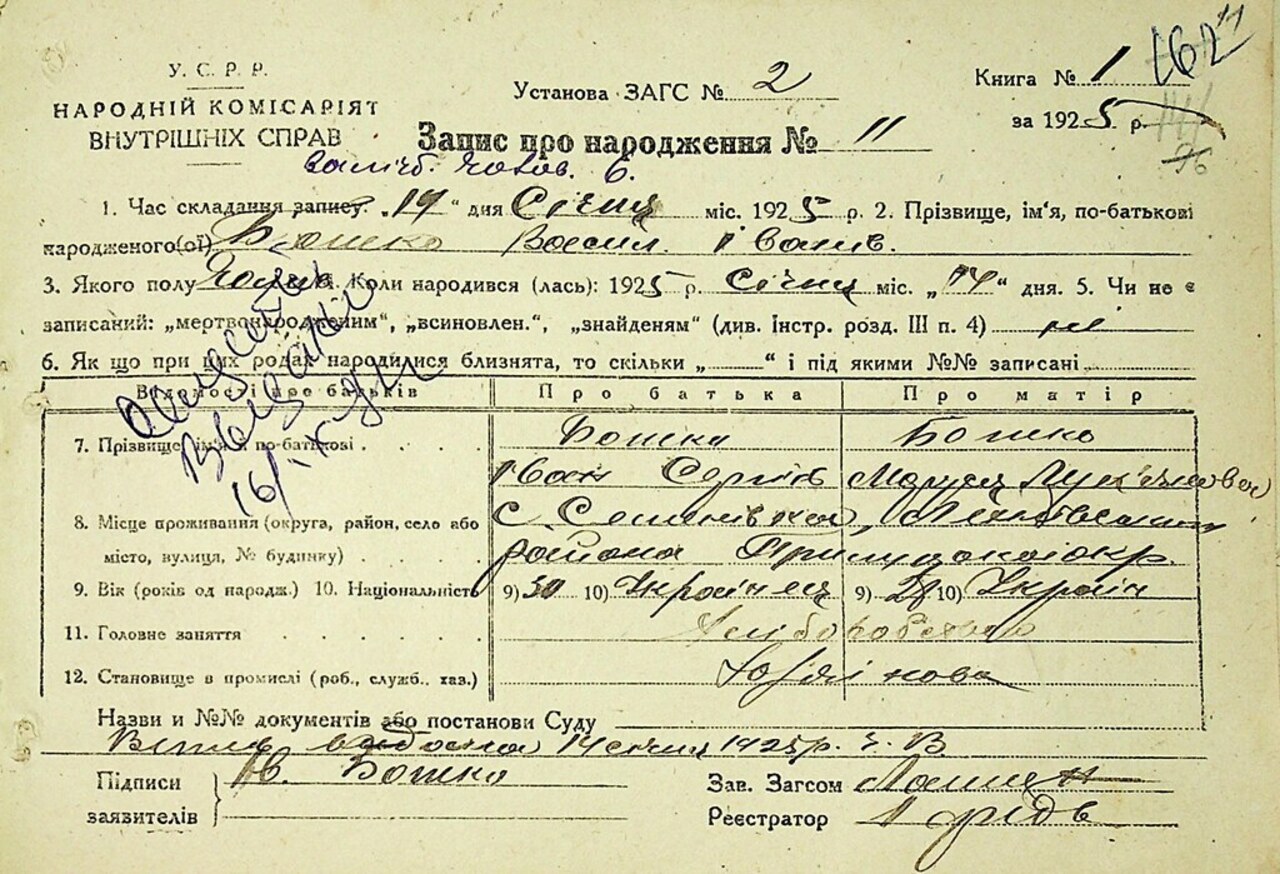 У. С. Р. Р.
НАРОДНІЙ КОМІСАРІЯТ
ВНУТРІШНІХ СПРАВ
Установа ЗАГС № 2
Книга № 1
162
за 1925 р.
96
Запис про народження № 11
1. Час складання запису. „19" дня Січня міс. 1925 р. 2. Прізвище, ім'я, по-батькові
народженого(ої) Божко Васил. Іванів.
3. Якого полу Коли народився (лась): 1925 р. Січня міс. „14" дня. 5. Чи не є
записаний: „мертвонародженим", „всиновлен.", „знайденям" (див. Інстр. розд. III п. 4) ні
6. Як що при цих родах народилися близнята, то скільки „ " і під якими №№ записані
Відомості про батьків Про батька Про матір
7. Прізвище, ім'я, по-батькові Божко Божко
Іван Сергіїв Маруся Лук'янова
8. Місце проживання (округа, район, село або с.
місто, вулиця, № будинку) района Прилуцкої окр.
9. Вік (років од народж.) 10. Національність 9) 30 10) Українец 9) 28 10) Україн
11. Головне заняття Хліборобство
12. Становище в промислі (роб., служб., хаз.)
Назви и №№ документів або постанови Суду
видана 14 січня 1925 р. ч. В
Підписи Ів. Божко Зав. Загсом
заявителів Реєстратор
16/IX